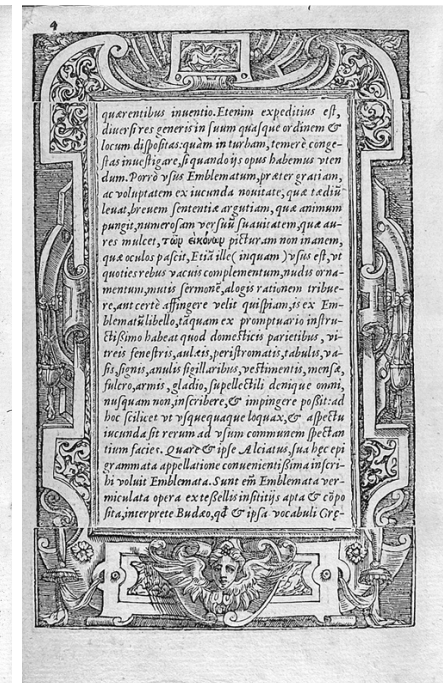 4
quærentibus inventio. Etenim expeditius est,
diversi res generis in suum quasque ordinem &
locum dispositas: quàm in turbam, temerè conge-
stas investigare, si quando ijs opus habemus vten
dum. Porrò vsus Emblematum, præter gratiam,
ac voluptatem ex iucunda novitate, quæ tædiũ
levat, brevem sententiæ argutiam, quæ animum
pungit, numerosam versuũ suavitatem, quæ au-
res mulcet, τῶν εἰκόνων picturam non inanem,
quæ oculos pascit, Etiã ille (inquam) vsus est, vt
quoties rebus vacuis complementum, nudis orna-
mentum, mutis sermonẽ, alogis rationem tribue-
re, aut certè affingere velit quispiam, is ex Em-
blematũ libello, tãquam ex promptuario instru-
ctissimo habeat quod domesticis parietibus, vi-
treis fenestris, aulæis, peristromatis, tabulis, va-
sis, signis, anulis sigillaribus, vestimentis, mensæ,
fulcro, armis, gladio, supellectili denique omni,
nusquam non, inscribere, & impingere possit: ad
hoc scilicet vt vsquequaque loquax, & aspectu
iucunda sit rerum ad vsum communem spectan
tium facies. Quare & ipse Alciatus, sua hęc epi
grammata appellatione convenientissima inscri-
bi voluit Emblemata. Sunt em̃ Emblemata ver-
miculata opera ex tesellis insititijs apta & cõpo
sita, interprete Budæo, qđ & ipsa vocabuli Grę-